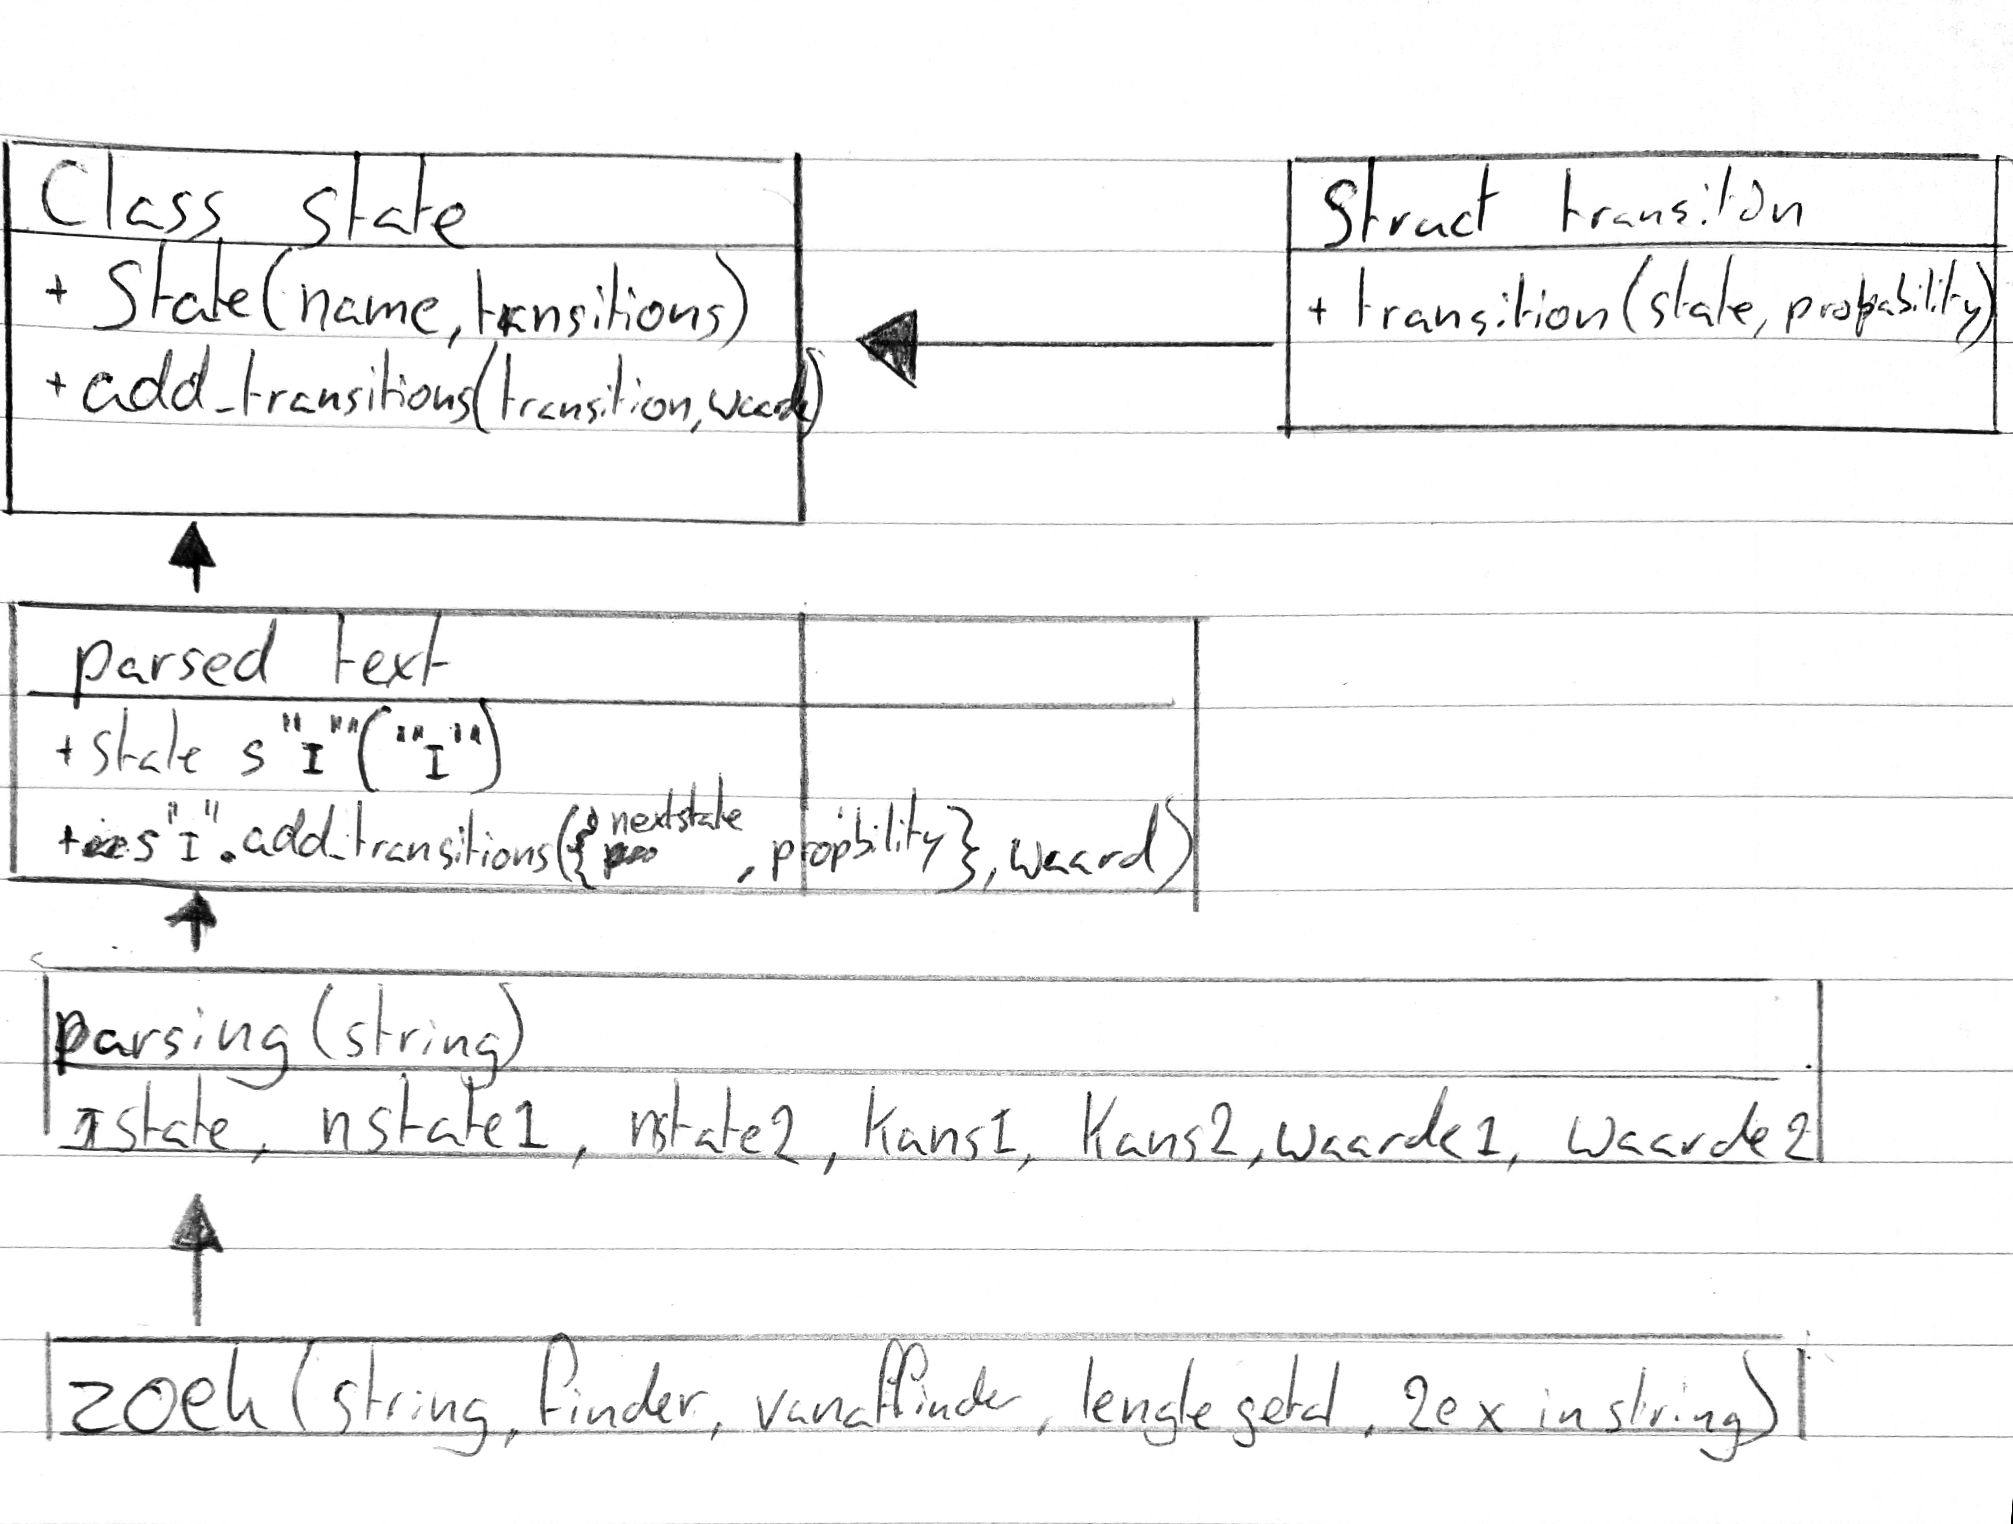 Class state
+ State(name, transitions)
+ add_transitions(transition, waarde)
Struct transition
+ transition(state, propability)
parsed text
+ state s"I"("I")
+ s"I".add_transitions({nextstate, propbility}, waard)
parsing(string)
Istate, nstate1, nstate2, Kans1, Kans2, waarde1, waarde2
zoek(string, finder, vanaffinder, lengte getal, 2e x in string)